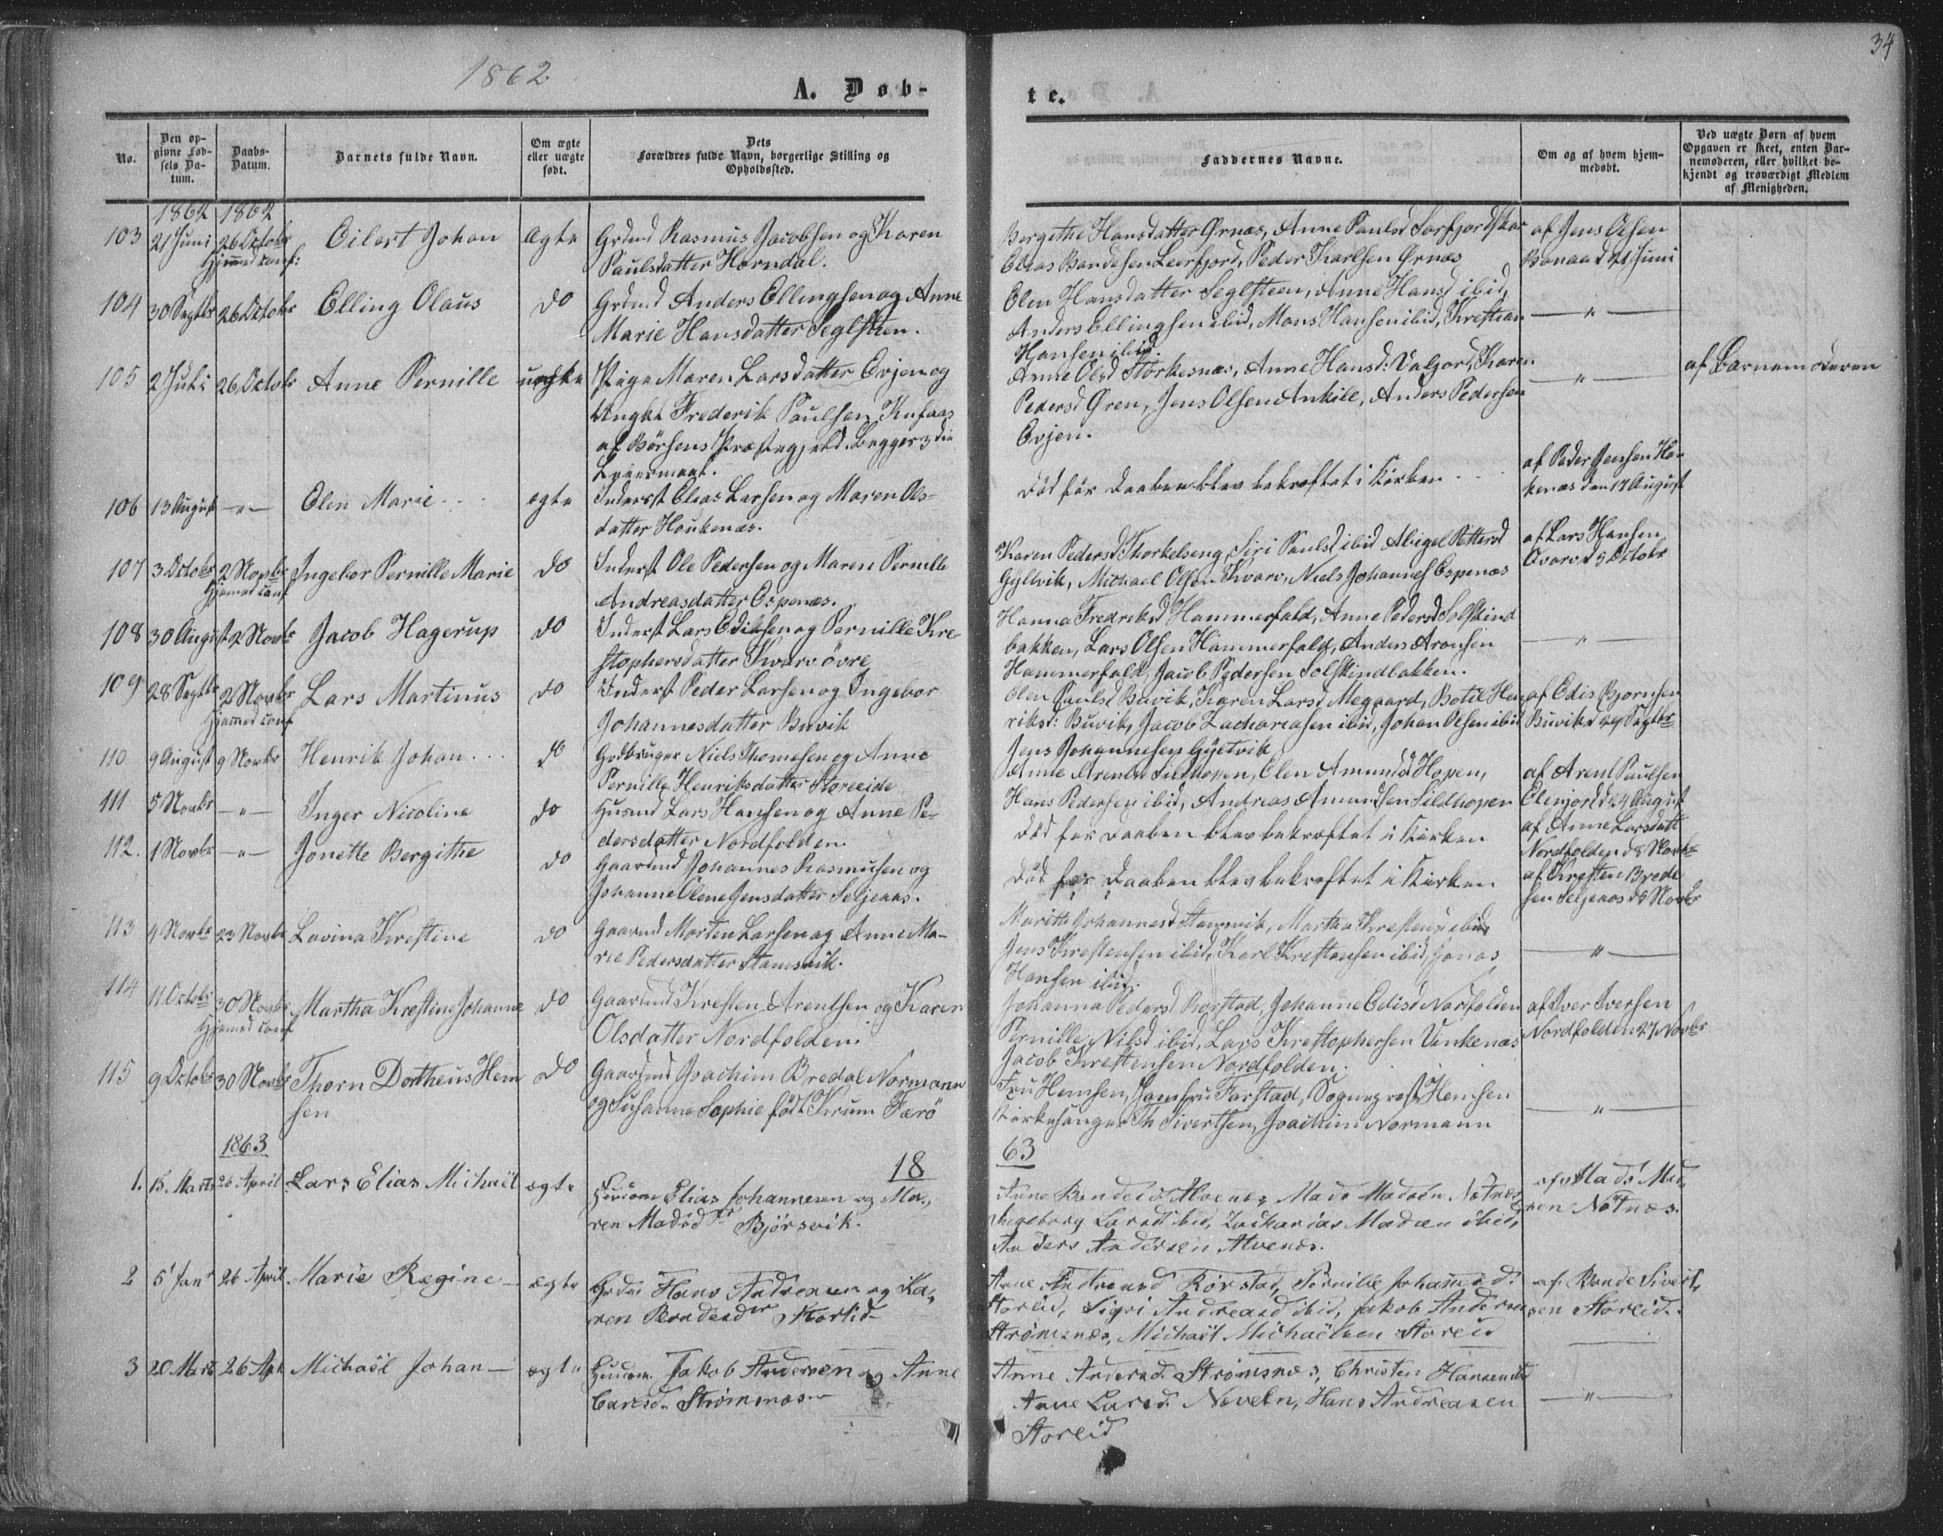 1862
A. Døb-
te.
34
No.
Den op-
givne Fød-
sels Da-
tum.
Daabs-
Datum.
Barnets fulde Navn.
Om ægte
eller uægte
født.
Dets
Forældres fulde Navn, borgerlige Stilling og
Opholdssted.
Faddernes Navne.
Om og af hvem hjem-
medøbt.
Ved uægte Børn af hvem
Opgaven er skeet, enten Bar-
nemoderen, eller hvilket be-
kjendt og troværdigt Medlem
af Menigheden.
1862 1862
103 21 Juni 26 Octobr Eilert Johan Ægte Grdmd Rasmus Jacobsen og Karen
Hjemmed. conf:
Paulsdatter Horndal.
Bergithe Hansdatter Ørnæs, Anne Paulsd Sørfjordskar
Elias Bendesen Leerfjord, Peder Karlsen Ørnæs
af Jens Olsen
Bonaa d 21 Juni
104 30 Septbr 26 Octobr Elling Olaus do Grdmd Anders Ellingsen og Anne
Marie Hansdatter Seglsteen.
Elen Hansdatter Seglsteen, Anne Hansd ibid,
Anders Ellingsen ibid, Mons Hansen ibid, Kristian
Hansen ibid.
— " —
105 2 Juli 26 Octobr Anne Pernille uægte Pige Maren Larsdatter Evjen og
Ungkl Frederik Paulsen Kufaas
af Børsens Præstegjeld. Begges 3die
Leiermaal.
Anne Olsd Storkesnæs, Anne Hansd: Valjord, Karen
Pedersd Gren, Jens Olsen Ankile, Anders Pedersen
Evjen.
— " —
af Barnemoderen
106 13 August — " — Elen Marie ægte Inderst Elias Larsen og Maren Ols-
datter Houkenæs.
død før Daaben blev bekræftet i Kirken
af Peder Jensen Ho-
kenæs den 17 August
107 3 Octobr 2 Novbr Ingebor Pernille Marie do Inderst Ole Pedersen og Maren Pernille
Hjemmed conf
Andreasdatter Espenæs.
Karen Pedersd Thorkelseng, Siri Paulsd ibid Abigel Pettersd
Gyltvik, Michael Olsen Kvarv, Niels Johannes Espenæs
af Lars Hansen
Qvarv d 5 Octobr
108 30 August 2 Novbr Jacob Hagerup do Inderst Lars Edissen og Pernille Kre-
stophersdatter Kvarv øvre
Hanna Fredriksd Hammerfald, Anne Pedersd Solskind
bakken, Lars Olsen Hammerfald, Anders Aronsen
Hammerfald, Jacob Pedersen Solskindbakken.
— " —
109 28 Septbr 2 Novbr Lars Martinus do Inderst Peder Larsen og Ingebor
Hjemmed conf
Johannesdatter Buvik
Elen Paulsd Buvik, Karen Larsd Megaard, Botel Hen
riksd: Buvik, Jacob Zachariasen ibid, Johan Olsen ibid
Jens Johannesen Gyltvik
af Edis Bjørnsen
Buvik d 29 Septbr
110 9 August 9 Novbr Henrik Johan do Gaardbruger Niels Thomesen og Anne
Pernille Henriksdatter Storeeide
Anne Arentsd Sildhopen, Elen Amundsd Hopen,
Hans Pedersen ibid, Andreas Amundsen Sildhopen
af Arent Paulsen
Elvejord d 24 August
111 5 Novbr — " — Inger Nicoline do Husmd Lars Hansen og Anne Pe-
dersdatter Nordfolden
død før Daaben blev bekræftet i Kirken
af Anne Larsdatt
Nordfolden d 8 Novbr
112. 1 Novbr — " — Jonette Bergithe do Gaardmd Johannes Rasmusen og
Johanne Elene Jensdatter Seljeaas.
død før Daaben blev bekræftet i Kirken
af Kresten Brede
sen Seljeaas d 8 Novbr
113 4 Novbr 23 Novbr Lovina Krestine do Gaardmd Morten Larsen og Anne Ma-
rie Pedersdatter Stamsvik.
Marith Johannesd Stamsvik, Martha Krestensd ibid
Jens Krestensen ibid, Karl Krestensen ibid, Jonas
Hansen ibid.
— " —
114 11 Octobr 30 Novbr Martha Krestine Johanne do Gaardmd Kresten Arentsen og Karen
Hjemmed conf
Olsdatter Nordfolden
Johanna Pedersd Borstad, Johanne Edisd Nordfolden
Pernille Nilsd ibid, Lars Krestophersen Vinkenæs
Jacob Krestensen Nordfolden.
af Iver Iversen
Nordfolden 27 Novbr
115 9 Octobr 30 Novbr Thorn Dortheus Hem do Gaardmd Joachim Bredal Normann
sen
og Susanne Sophie født Krum Færø
Fru Hemsen, Jomfru Farstad, Sognepræst Hemsen
Kirkesanger Th Sivertsen, Joachim Normann
— " —
1863
18 63
1. 15. Marts 26 April Lars Elias Michael ægte Huusm Elias Johannesen og Ma-
ren Madsdr Bjørsvik.
Anne Bendesd. Alvenes, Mads Madsen Nøtnæs,
Ingeborg Larsd ibid, Zacharias Madsen ibid,
Anders Andersen Alvenæs.
af Mads Mad
sen Nøtnæs.
2 5 Janr 26 April Marie Regine — ægte Grdm Hans Andreasen og Ka-
ren Bendesdr Storlid
Ane Andreasd Rørstad, Pernille Johannesd.
Storeid, Sigri Andreasd ibid, Jakob Andersen
Strømsnæs, Michael Michaelsen Storeid
af Bende Sivert
sen Storeid.
3 20 Mart 26 Apr Michaël Johan — ægte Huusm. Jakob Andersen og Anne
Larsd. Strømsnæs
Anne Andersd. Strømsnæs, Christen Hansen ibid
Anne Larsd. Neveln, Hans Andreasen
Storeid
— " —